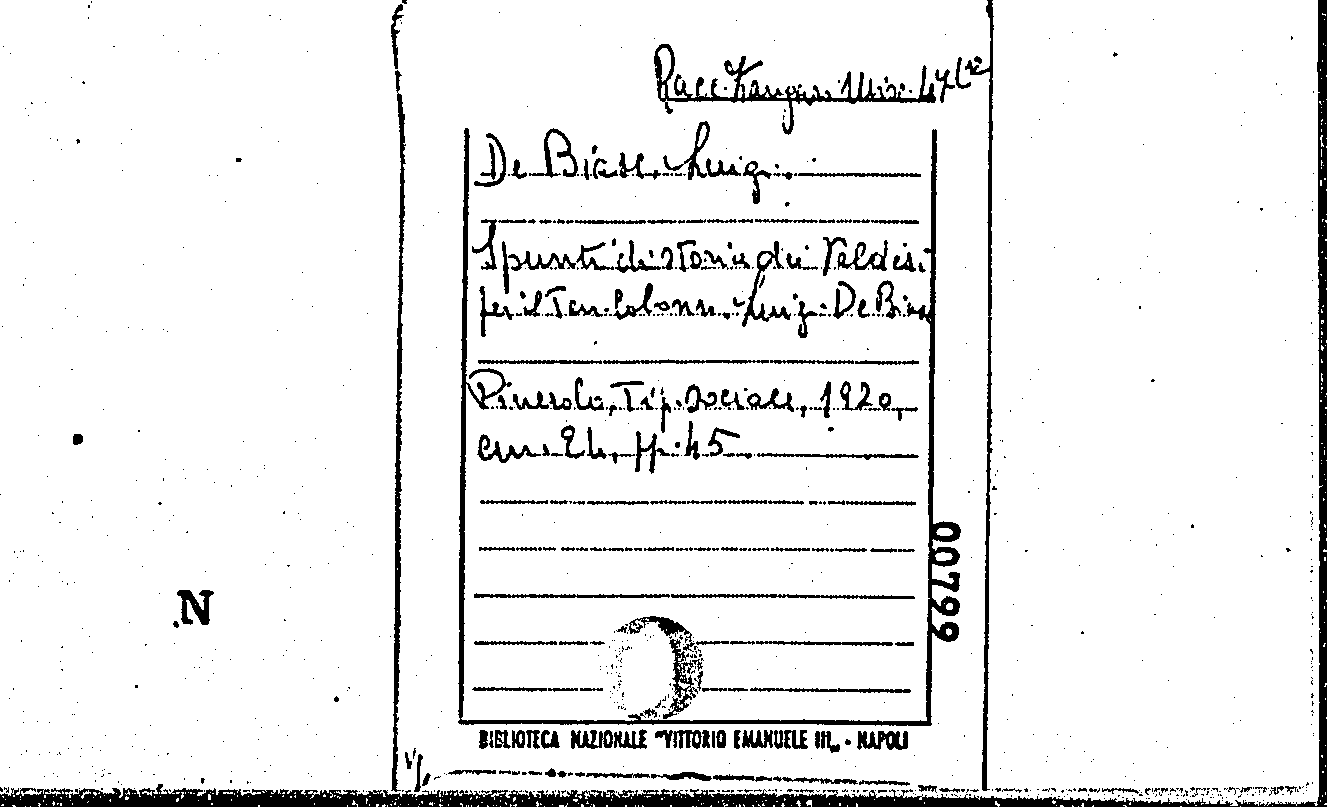 Racc. Zangari Misc. 47
De Biase Luigi.
Spunti di storia dei Valdesi
per il Ten. Colonn. Luigi De Biase
Pinerolo, Tip. Sociale, 1920,
cm. 24, pp. 45.
00799
N
BIBLIOTECA NAZIONALE "VITTORIO EMANUELE III„ - NAPOLI